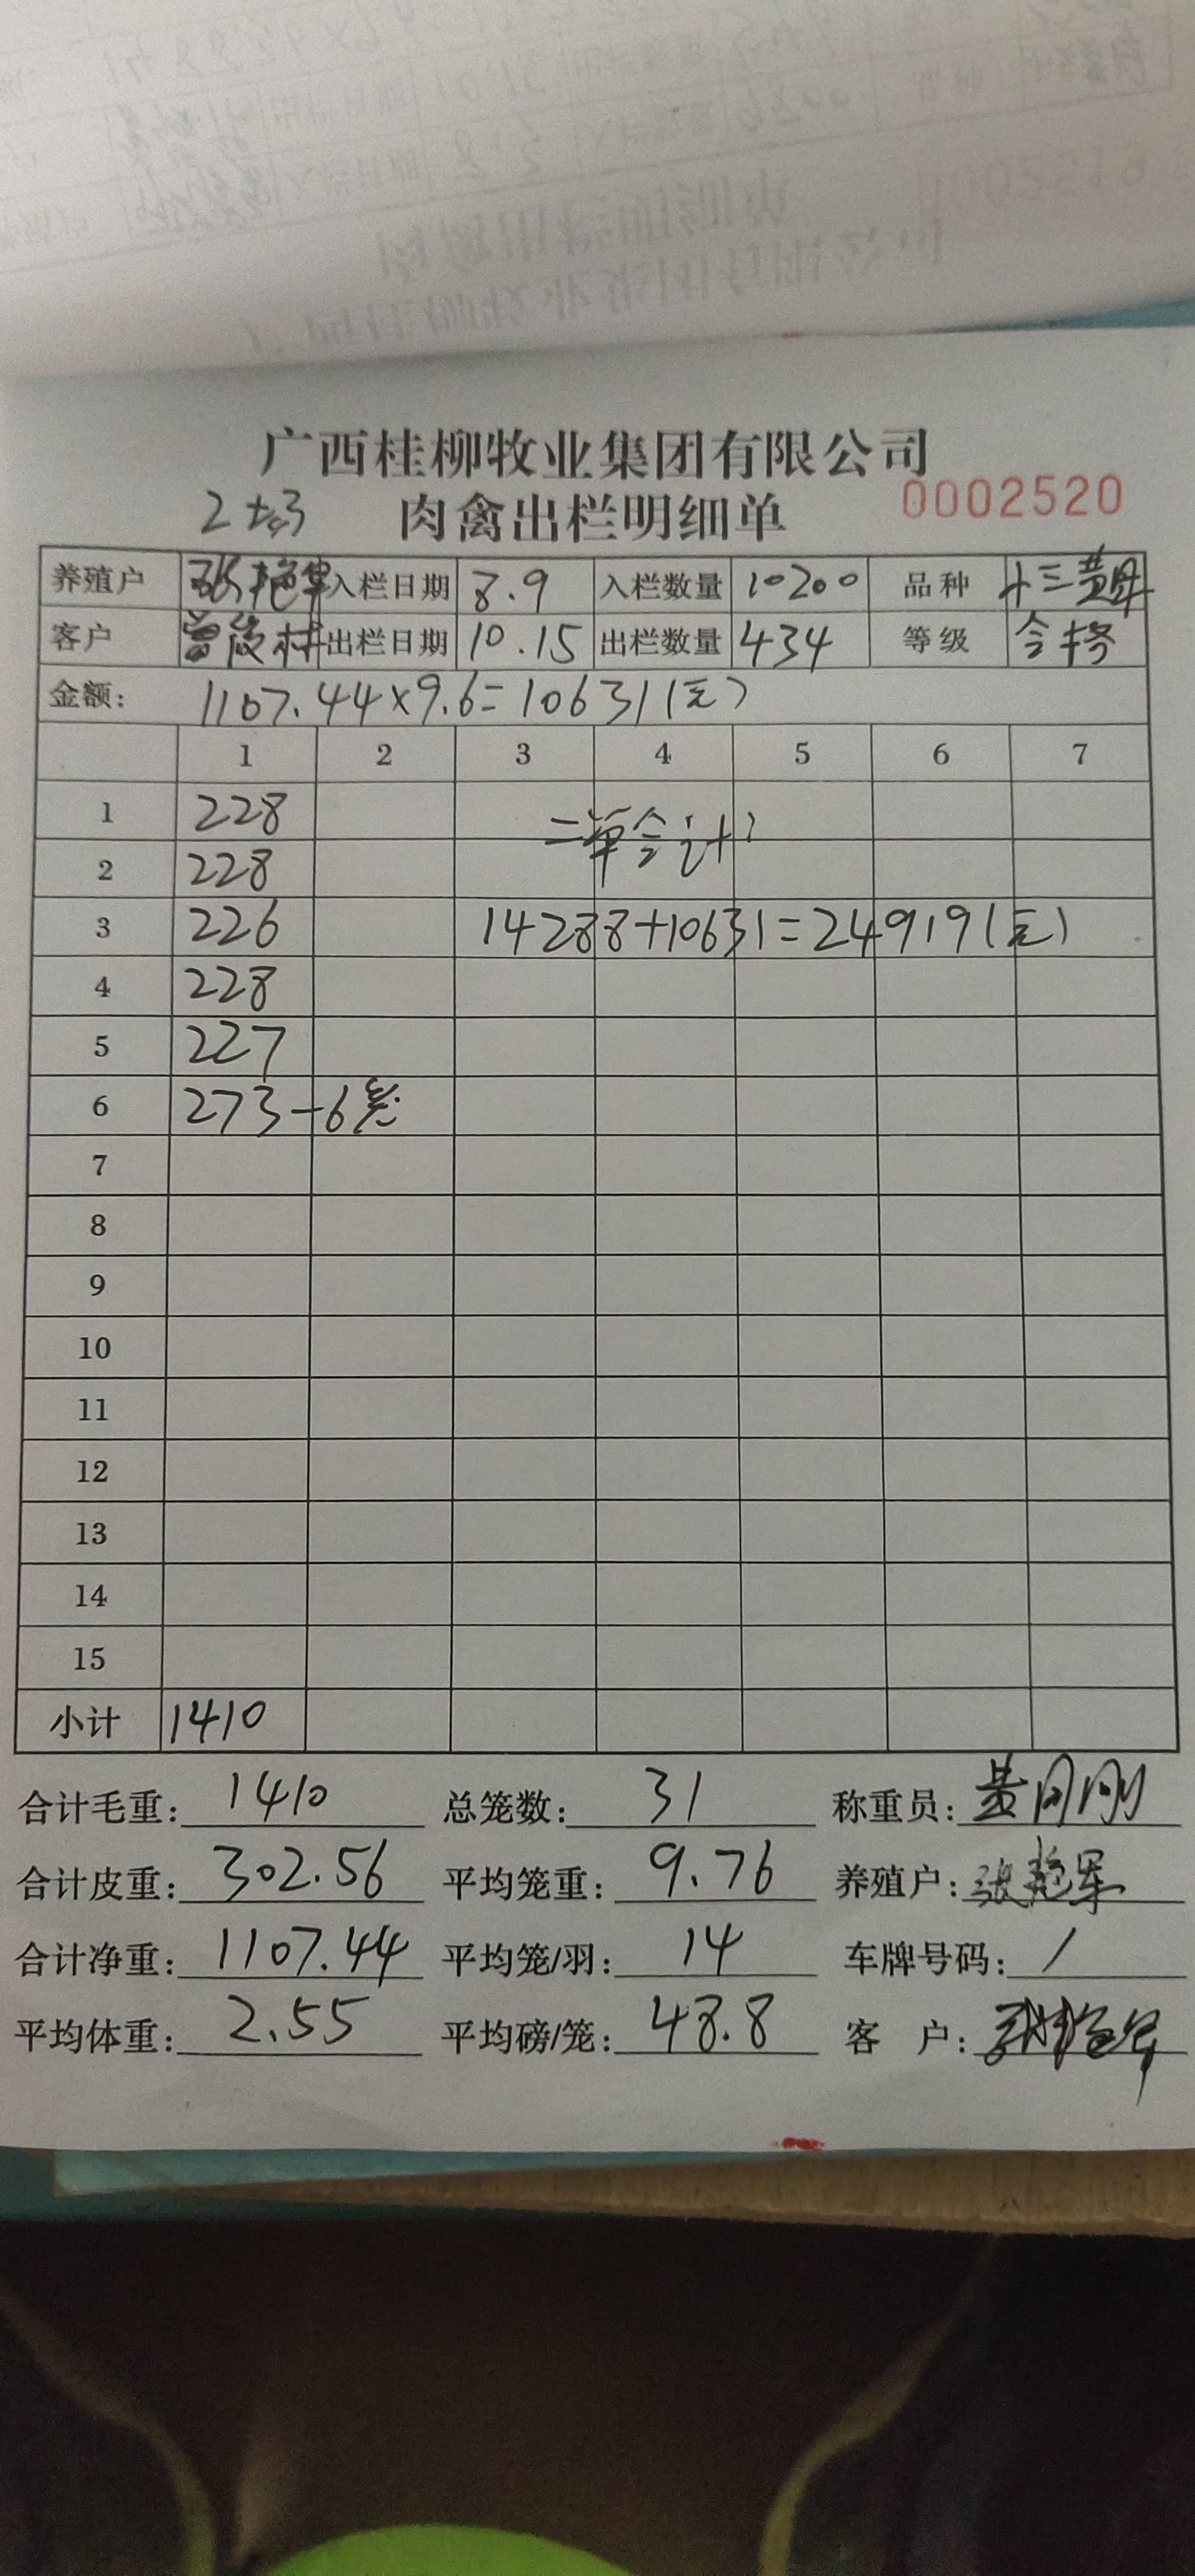 广西桂柳牧业集团有限公司
肉禽出栏明细单 0002520
养殖户 入栏日期 8.9 入栏数量 10200 品种 十三黄母
客户 出栏日期 10.15 出栏数量 434 等级 合格
金额: 1107.44×9.6=10631(元)
1 2 3 4 5 6 7
1 228 二单合计:
2 228
3 226 14288+10631=24919(元)
4 228
5 227
6 273-6笼
7
8
9
10
11
12
13
14
15
小计 1410
合计毛重: 1410 总笼数: 31 称重员:
合计皮重: 302.56 平均笼重: 9.76 养殖户: 张艳军
合计净重: 1107.44 平均笼/羽: 14 车牌号码: /
平均体重: 2.55 平均磅/笼: 48.8 客户: